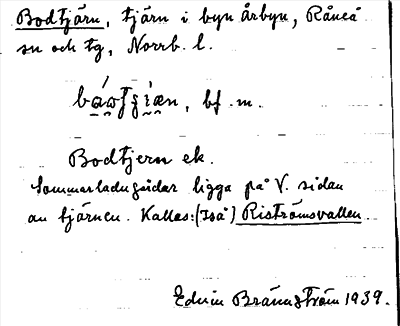 Bodtjärn, tjärn i byn Årbyn, Råneå
sn och tg, Norrb. l.
bf. m.
Bodtjern ek.
Sommarladugårdar ligga på V. sidan
av tjärnen. Kallas: (Iså) Riströmsvallen
Edvin Brännström 1939.